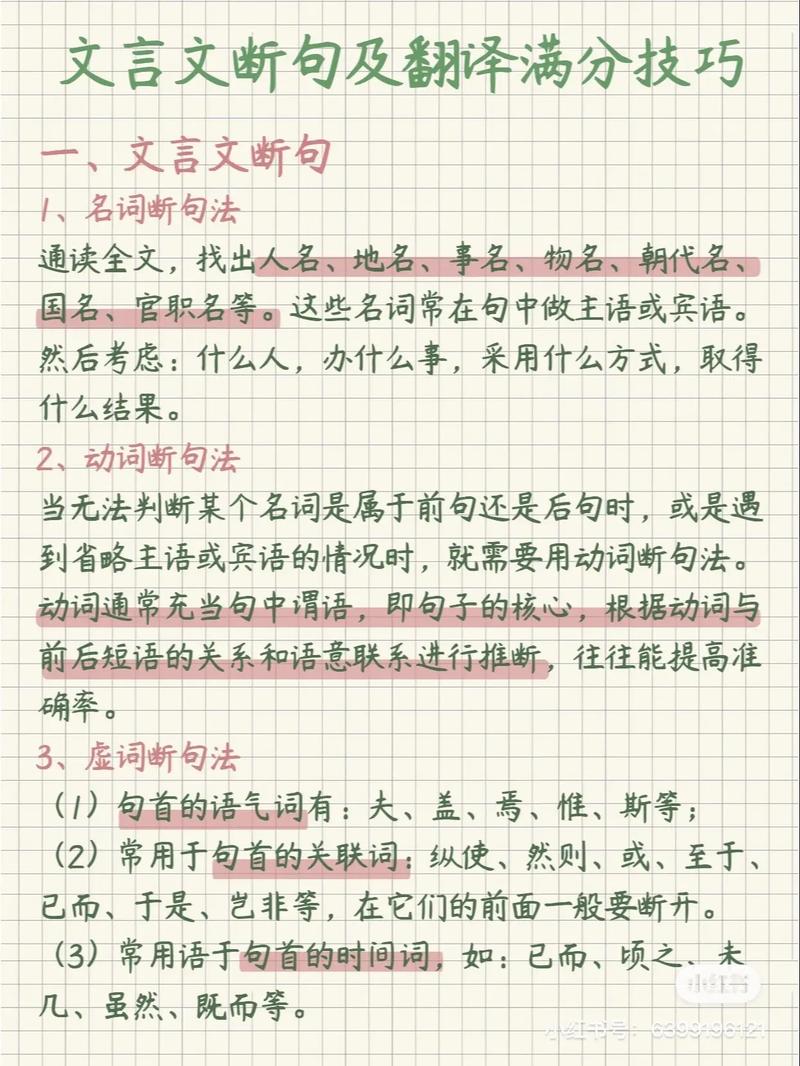 文言文断句及翻译满分技巧
一、文言文断句
1、名词断句法
通读全文，找出人名、地名、事名、物名、朝代名、
国名、官职名等。这些名词常在句中做主语或宾语。
然后考虑：什么人，办什么事，采用什么方式，取得
什么结果。
2、动词断句法
当无法判断某个名词是属于前句还是后句时，或是遇
到省略主语或宾语的情况时，就需要用动词断句法。
动词通常充当句中谓语，即句子的核心，根据动词与
前后短语的关系和语意联系进行推断，往往能提高准
确率。
3、虚词断句法
（1）句首的语气词有：夫、盖、焉、惟、斯等；
（2）常用于句首的关联词：纵使、然则、或、至于、
已而、于是、岂非等，在它们的前面一般要断开。
（3）常用语于句首的时间词，如：已而、顷之、未
几、虽然、既而等。
小红书
小红书号：6399196121